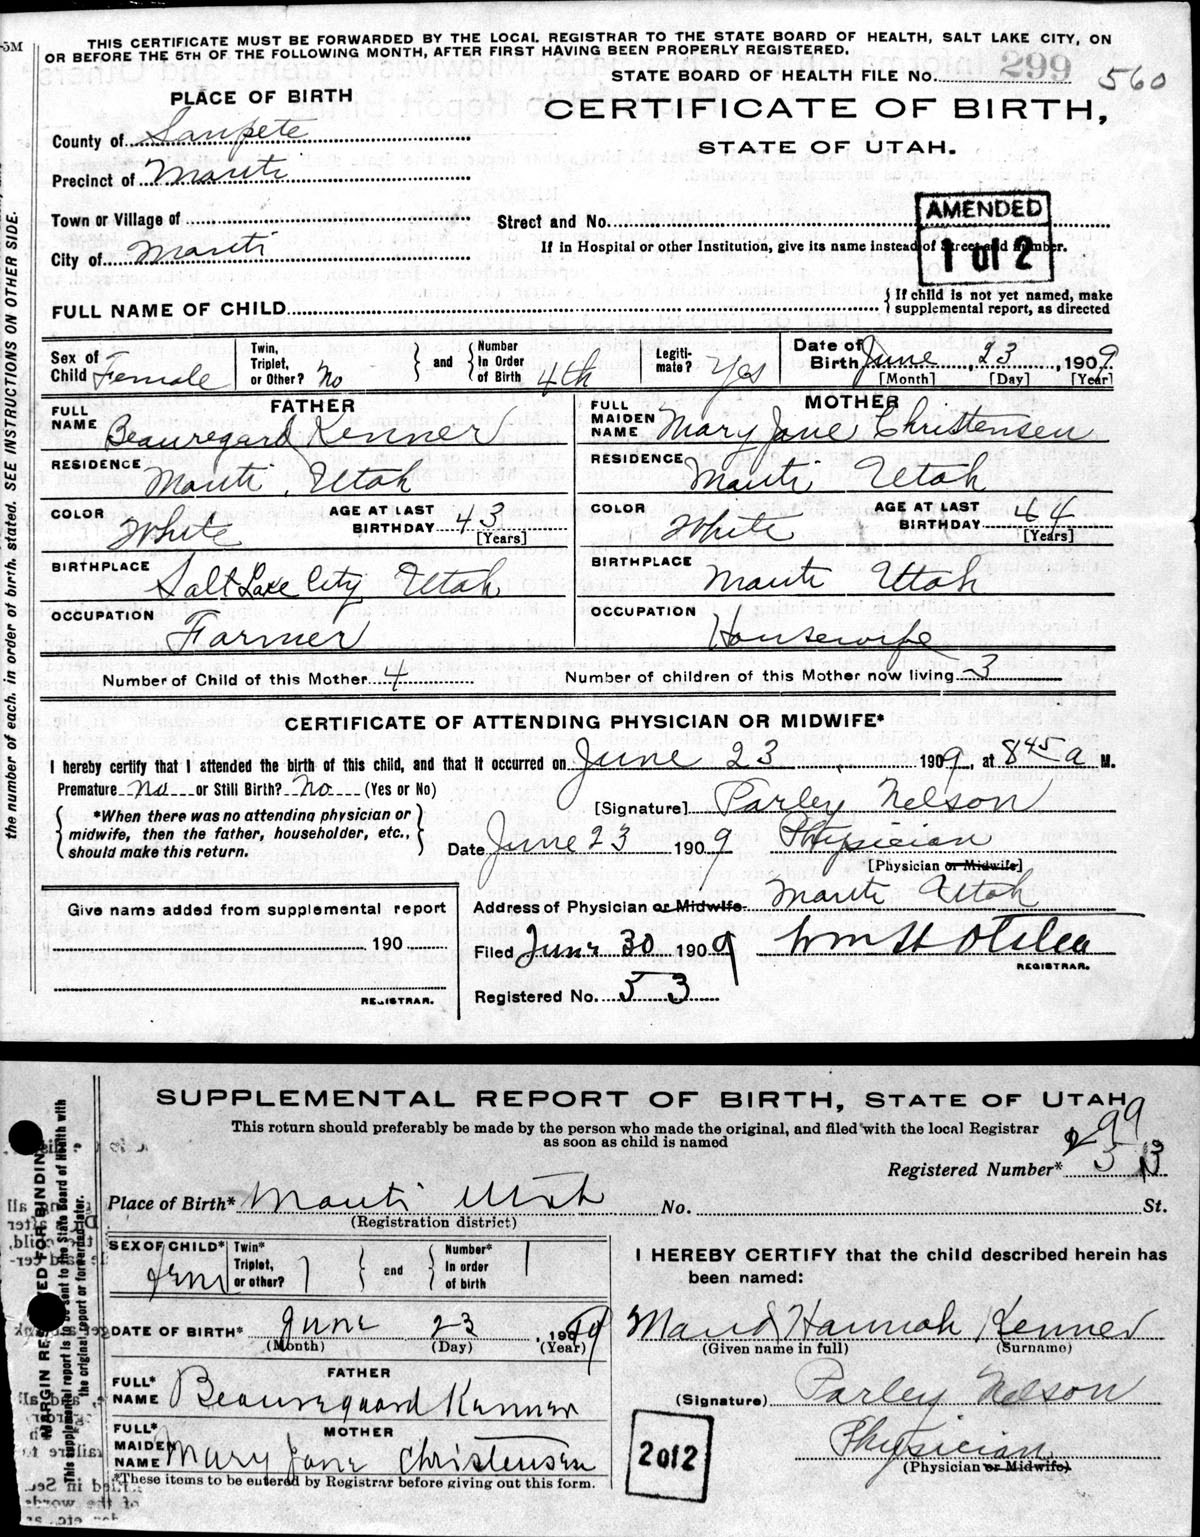 THIS CERTIFICATE MUST BE FORWARDED BY THE LOCAL REGISTRAR TO THE STATE BOARD OF HEALTH, SALT LAKE CITY, ON
OR BEFORE THE 5TH OF THE FOLLOWING MONTH, AFTER FIRST HAVING BEEN PROPERLY REGISTERED.
STATE BOARD OF HEALTH FILE No. 299 560
PLACE OF BIRTH
CERTIFICATE OF BIRTH,
STATE OF UTAH.
County of Sanpete
Precinct of Manti
Town or Village of
Street and No.
AMENDED
1 of 2
City of Manti
If in Hospital or other Institution, give its name instead of Street and Number.
FULL NAME OF CHILD
{If child is not yet named, make
supplemental report, as directed
Sex of Child Female
Twin, Triplet, or Other? No
} and {
Number In Order of Birth 4th
Legitimate? Yes
Date of Birth June 23, 1909
[Month] [Day] [Year]
FATHER
FULL NAME Beauregard Kenner
RESIDENCE Manti, Utah
COLOR White
AGE AT LAST BIRTHDAY 43
[Years]
BIRTHPLACE Salt Lake City Utah
OCCUPATION Farmer
MOTHER
FULL MAIDEN NAME Mary Jane Christensen
RESIDENCE Manti Utah
COLOR White
AGE AT LAST BIRTHDAY 44
[Years]
BIRTHPLACE Manti Utah
OCCUPATION Housewife
Number of Child of this Mother 4
Number of children of this Mother now living 3
CERTIFICATE OF ATTENDING PHYSICIAN OR MIDWIFE*
I hereby certify that I attended the birth of this child, and that it occurred on June 23, 1909, at 8 45 a M.
Premature No or Still Birth? No (Yes or No)
{*When there was no attending physician or
midwife, then the father, householder, etc.,
should make this return.}
[Signature] Parley Nelson
Date June 23 1909 Physician
[Physician or Midwife]
Address of Physician or Midwife Manti Utah
Give name added from supplemental report
190
REGISTRAR.
Filed June 30 1909
REGISTRAR.
Registered No. 53
the number of each, in order of birth, stated. SEE INSTRUCTIONS ON OTHER SIDE.
SUPPLEMENTAL REPORT OF BIRTH, STATE OF UTAH
This return should preferably be made by the person who made the original, and filed with the local Registrar
as soon as child is named
299
Registered Number* 53
Place of Birth* Manti Utah No. St.
(Registration district)
SEX OF CHILD* Fem
Twin* Triplet, or other?
} and {
Number* In order of birth
DATE OF BIRTH* June 23, 1909
(Month) (Day) (Year)
FATHER
FULL* NAME Beauregaard Kenner
MOTHER
FULL* MAIDEN NAME Mary Jane Christensen
*These items to be entered by Registrar before giving out this form.
I HEREBY CERTIFY that the child described herein has
been named:
Maud Hannah Kenner
(Given name in full) (Surname)
(Signature) Parley Nelson
Physician
(Physician or Midwife)
2 of 2
MARGIN RESERVED FOR BINDING
This supplemental report is to be sent to the State Board of Health with
the original report or forwarded later.